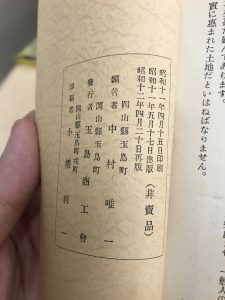 實に惠まれた土地だといはねばなりません。
昭和十一年四月十五日印刷
昭和十一年五月十七日出版
昭和十二年四月二十日再版
(非賣品)
岡山縣玉島町
編著者 中村唯一
岡山縣玉島町
發行者 玉島商工會
岡山縣玉島町戎町
印刷者 小 利一